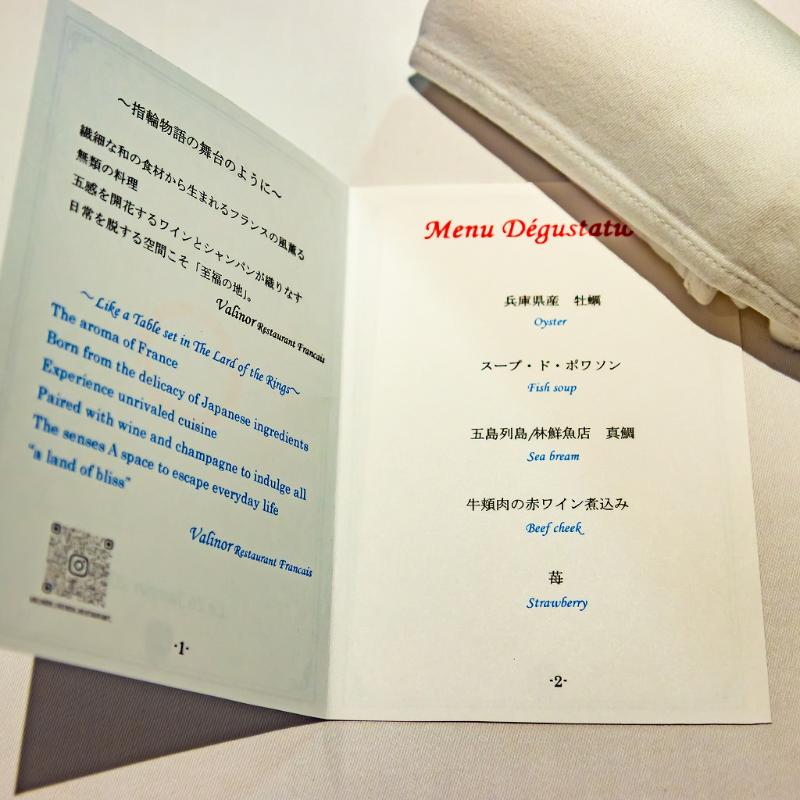 ～指輪物語の舞台のように～
繊細な和の食材から生まれるフランスの風薫る
無類の料理
五感を開花するワインとシャンパンが織りなす
日常を脱する空間こそ「至福の地」。
Valinor Restaurant Francais
～Like a Table set in The Lard of the Rings～
The aroma of France
Born from the delicacy of Japanese ingredients
Experience unrivaled cuisine
Paired with wine and champagne to indulge all
The senses A space to escape everyday life
"a land of bliss"
Valinor Restaurant Francais
-1-
Menu Dégustatio
兵庫県産 牡蠣
Oyster
スープ・ド・ポワソン
Fish soup
五島列島/林鮮魚店 真鯛
Sea bream
牛頬肉の赤ワイン煮込み
Beef cheek
苺
Strawberry
-2-